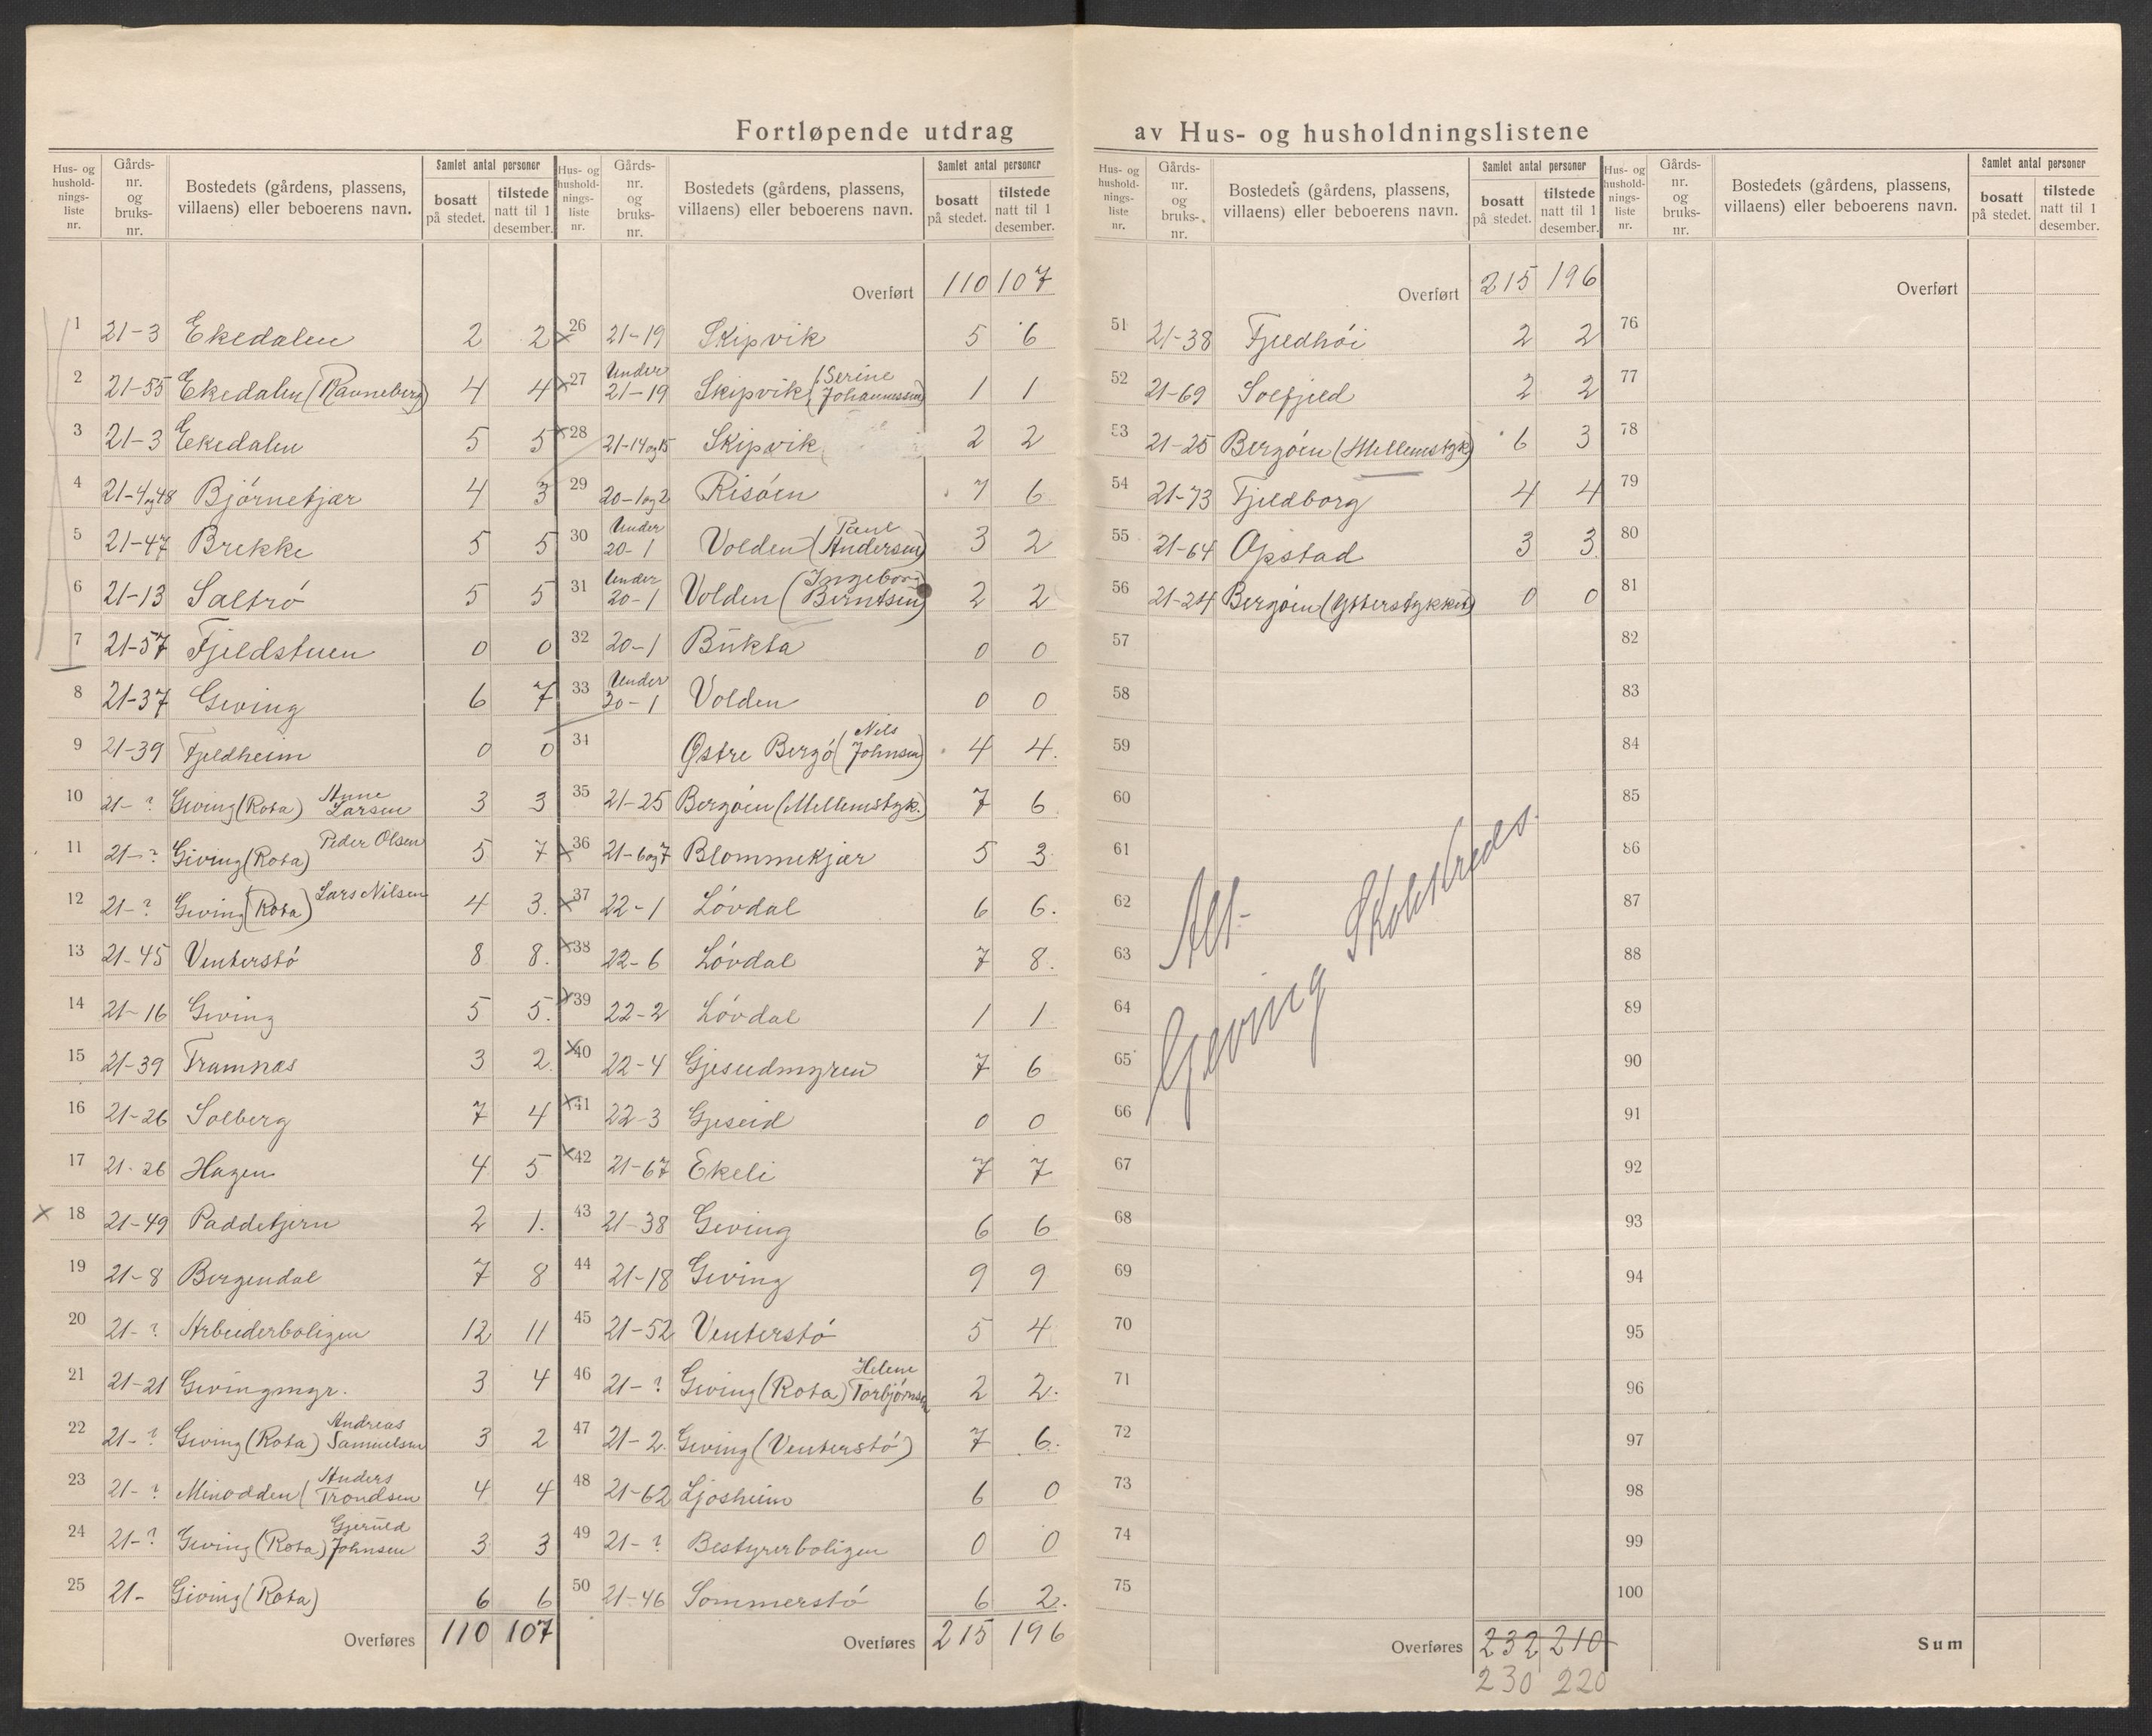 Fortløpende utdrag av Hus- og husholdningslistene
Hus- og husholdnings-liste nr. | Gårds-nr. og bruks-nr. | Bostedets (gårdens, plassens, villaens) eller beboerens navn. | Samlet antal personer: bosatt på stedet. | tilstede natt til 1 desember.
1 21-3 Ekedalen 2 2
2 21-55 Ekedalen (Ravneberg) 4 4
3 21-3 Ekedalen 5 5
4 21-4og48 Bjørnetjær 4 3
5 21-47 Brekke 5 5
6 21-13 Saltrø 5 5
7 21-57 Fjeldstuen 0 0
8 21-37 Geving 6 7
9 21-39 Fjeldheim 0 0
10 21-? Geving (Rota) Anne Larsen 3 3
11 21-? Geving (Rota) Peder Olsen 5 7
12 21-? Geving (Rota) Lars Nilsen 4 3.
13 21-45 Venterstø 8 8.
14 21-16 Geving 5 5.
15 21-39 Framnæs 3 2.
16 21-26 Solberg 7 4
17 21-26 Hagen 4 5
x 18 21-49 Paddetjern 2 1.
19 21-8 Bergendal 7 8
20 21-? Arbeiderboligen 12 11
21 21-21 Gevingmyr. 3 4
22 21-? Geving (Rota) Andreas Samuelsen 3 2
23 21-? Minodden (Anders Trondsen 4 4
24 21-? Geving (Rota) Gjeruld Johnsen 3 3
25 21- Geving (Rota) 6 6
Overføres 110 107
Hus- og husholdnings-liste nr. | Gårds-nr. og bruks-nr. | Bostedets (gårdens, plassens, villaens) eller beboerens navn. | Samlet antal personer: bosatt på stedet. | tilstede natt til 1 desember.
Overført 110 107
x 26 21-19 Skipvik 5 6
x 27 Under 21-19 Skipvik (Serine Johannessen) 1 1
x 28 21-14og15 Skipvik 2 2
29 20-1og2 Risøen 7 6
30 Under 20-1 Volden (Paul Andersen) 3 2
31 Under 20-1 Volden (Ingeborg Berntsen) 2 2
32 20-1 Bukta 0 0
33 Under 20-1 Volden 0 0
34 Østre Bergø (Nils Johnsen) 4 4.
35 21-25 Bergøen (Mellemstyk.) 7 6.
x 36 21-6og7 Blommekjær 5 3
x 37 22-1 Løvdal 6 6.
x 38 22-6 Løvdal 7 8.
x 39 22-2 Løvdal 1 1
x 40 22-4 Gjeseidmyren 7 6
x 41 22-3 Gjeseid 0 0
x 42 21-67 Ekeli 7 7
43 21-38 Geving 6 6
44 21-18 Geving 9 9
45 21-52 Venterstø 5 4
46 21-? Geving (Rota) Helene Torbjørnsen 2 2.
47 21-2. Geving (Venterstø) 7 6.
48 21-62 Ljosheim 6 0
49 21-? Bestyrerboligen 0 0
50 21-46 Sommerstø 6 2.
Overføres 215 196
Hus- og husholdnings-liste nr. | Gårds-nr. og bruks-nr. | Bostedets (gårdens, plassens, villaens) eller beboerens navn. | Samlet antal personer: bosatt på stedet. | tilstede natt til 1 desember.
Overført 215 196
51 21-38 Fjeldhøi 2 2
52 21-69 Solfjeld 2 2
53 21-25 Bergøen (Mellemstyk) 6 3
54 21-73 Fjeldborg 4 4
55 21-64 Opstad 3 3
56 21-24 Bergøen (Ytterstykket) 0 0
57
58
59
60
61
62
63
64
65
66
67
68
69
70
71
72
73
74
75
Alt-
Gjeving Skolekreds.
Overføres 232 210
230 220
Hus- og husholdnings-liste nr. | Gårds-nr. og bruks-nr. | Bostedets (gårdens, plassens, villaens) eller beboerens navn. | Samlet antal personer: bosatt på stedet. | tilstede natt til 1 desember.
Overført
76
77
78
79
80
81
82
83
84
85
86
87
88
89
90
91
92
93
94
95
96
97
98
99
100
Sum